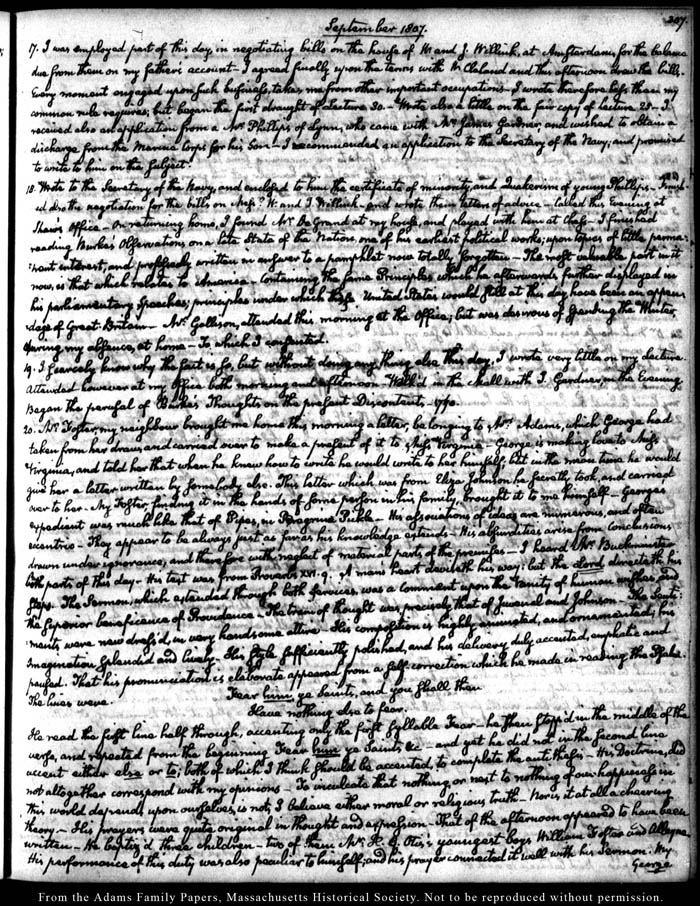 207
September 1807.
17. I was employed part of this day, in negotiating bills on the house of W. and J. Willink, at Amsterdam, for the balance
due from them on my father's account — I agreed finally upon the terms with Mr. Cleland and this afternoon drew the bills.
Every moment engaged upon such business, takes me from other important occupations — I wrote therefore less than my
common rule requires; but began the first draught of Lecture 30 — Wrote also a little on the fair copy of Lecture 23 — I
received also an application from a Mr. Phillips of Lynn, who came with Mr. James Gardner, and wished to obtain a
discharge from the Marine Corps for his Son — I recommended an application to the Secretary of the Navy; and promised
to write to him on the subject.
18. Wrote to the Secretary of the Navy, and enclosed to him the certificate of minority, and quakerism of young Phillips —
the negotiation for the bills on Mess.rs W. and J. Willink — and wrote them letters of advice — called this Evening at
Shaw's Office — On returning home, I found Mr. De Grand at my house, and played with him at chess — I finished
reading Burke's Observations on a late State of the Nation, one of his earliest political works; upon topics of little perma-
nent interest, and professedly written in answer to a pamphlet now totally forgotten — The most valuable part in it
now, is that which relates to America — Containing the same Principles which he afterwards further displayed in
his parliamentary Speeches; principles under which these United States would still at this day have been an appen-
dage of Great Britain — Mr. Gallison, attended this morning at the Office; but was desirous of spending the Winter,
during my absence, at home — To which I consented.
19. I scarcely know why the fact is so, but without doing any thing else this day, I wrote very little on my Lecture.
Attended however at my Office both morning and afternoon — Walk'd in the Mall with J. Gardner, in the Evening.
Began the perusal of Burke's Thoughts on the present Discontents — 1770.
20. Mr. Foster, my neighbour brought me home this morning a letter, belonging to Mrs. Adams, which George had
taken from her draw, and carried over to make a present of it to Miss Virginia — George is making love to Miss
Virginia, and told her that when he knew how to write he would write to her himself; but in the mean time he would
give her a letter written by somebody else. This letter which was from Eliza Johnson he secretly took, and carried
over to her. Mr. Foster, finding it in the hands of some person in his family, brought it to me himself — George's
expedient was much like that of Pipes, in Peregrine Pickle — His associations of ideas are numerous, and often
eccentric — They appear to be always just as far as his knowledge extends — His absurdities arise from conclusions
drawn under ignorance, and therefore with neglect of material parts of the premises — I heard Mr. Buckminster
both parts of this day — His text was from Proverbs XVI. 9. A man's heart deviseth his way: but the Lord directeth his
steps. The Sermon, which extended through both services, was a comment upon the Vanity of human wishes, and
the Superior beneficence of Providence — The train of thought was precisely that of Juvenal and Johnson. The Senti-
ments were new dressed, in very handsome attire — His composition is highly animated, and ornamented; his
Imagination splendid and lively — His style sufficiently polished, and his delivery duly accented, emphatic and
paused. That his pronunciation is elaborate appeared from a self-correction which he made in reading the Psalm.
The lines were.
Fear him, ye Saints, and you shall then
Have nothing else to fear.
He read the first line half through, accenting only the first syllable Fear — he then stopp'd in the middle of the
verse, and repeated from the beginning Fear him ye Saints &c — and yet he did not in the second line
accent either else or to; both of which I think should be accented, to complete the antithesis — His Doctrine, did
not altogether correspond with my opinions — To inculcate that nothing or next to nothing of our happiness in
this world depends upon ourselves, is not I believe either moral or religious truth — Nor is it at all a cheering
theory. — His prayers were quite original in thought and expression — That of the afternoon appeared to have been
written — He baptiz'd three children — two of them Mr. H. G. Otis's youngest boys William Foster and Alleyne
His performance of this duty was also peculiar to himself; and his prayer connected it well with his Sermon. My
George
From the Adams Family Papers, Massachusetts Historical Society. Not to be reproduced without permission.